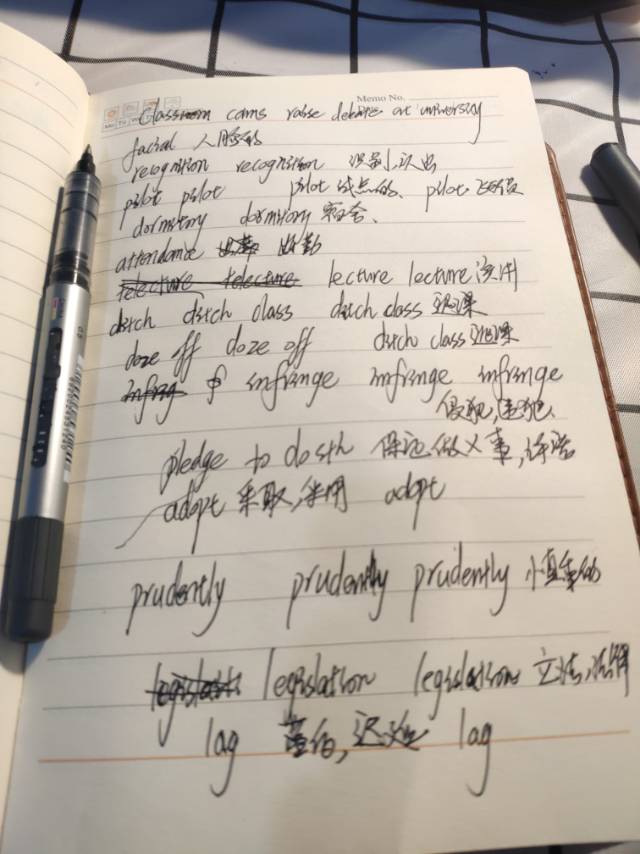 Memo No.
Mo Tu We
Classroom cams raise debate at university
facial 人脸的
recognition recognition 识别,认出
pilot pilot pilot 试点的、pilot 飞行员
dormitory dormitory 宿舍、
attendance 出勤
telecture telecture lecture lecture
ditch ditch class ditch class 翘课
doze off doze off ditch class 翘课
infring infringe infringe infringe
侵犯,违犯
pledge to do sth 保证做某事,许诺
adopt 采取,采用 adopt
prudently prudently prudently 小心谨慎的
legislati legislation legislation 立法,法律
lag 落后,迟延 lag